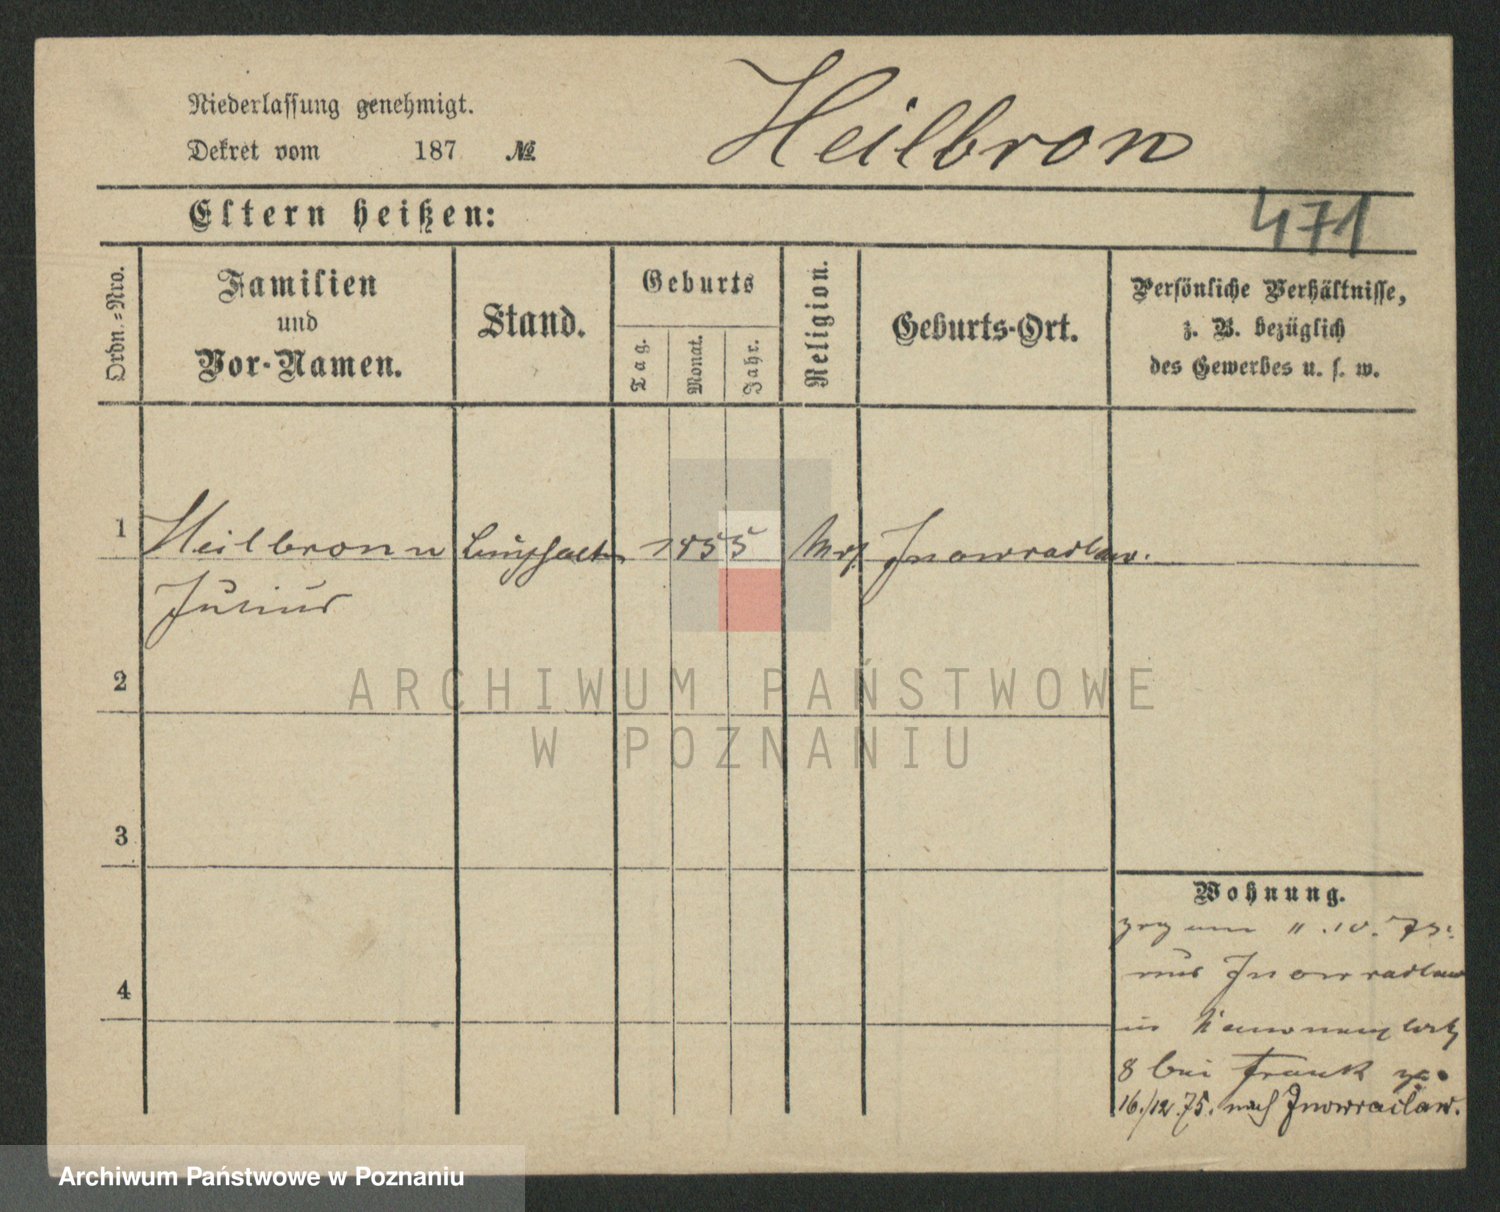 Niederlassung genehmigt.
Dekret vom 187 №
Heilbron
Eltern heißen:
471
Ordn.=Nro.
Familien
und
Vor-Namen.
Stand.
Geburts
Tag.
Monat.
Jahr.
Religion.
Geburts-Ort.
Persönliche Verhältnisse,
z. B. bezüglich
des Gewerbes u. s. w.
1
Heilbronn 1855 Inowraclaw.
Julius
2
ARCHIWUM PAŃSTWOWE
W POZNANIU
3
Wohnung.
10. 75.
aus Inowraclaw
4
in
8 bei Frank
16./12.75. nach Inowraclaw.
Archiwum Państwowe w Poznaniu